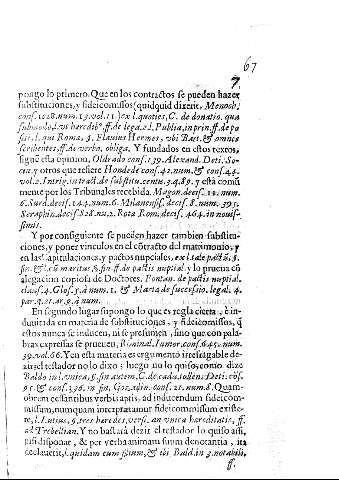 67
7
pongo lo primero. Que en los contractos se pueden hazer
substituciones, y fideicomissos (quidquid dixerit, Menoch.
conf. 1028. num. 13. vol. 11.) ex l. quoties, C. de donatio. quæ
submodo, l. ut heredib. ff. de lega. 2. l. Publia, in prin. ff. de po
siti. l. qui Roma, §. Flavius Hermes, ubi Bart. & omnes
scribentes, ff. de verbo. obliga. Y fundados en estos textos,
sigue esta opinion, Oldrado conf. 139. Alexand. Deci. So-
cin. y otros que refiere Hondede conf. 42. num. & conf. 43.
vol. 2. Intrig. in tract. de substitu. centu. 3. q. 89. y està comu
mente por los Tribunales recebida, Magon. decis. 13. num.
6. Surd. decis. 144. num. 6. Milanens. decis. 8. num. 395.
Seraphin. decis. 828. nu. 2. Rota Rom. decis. 464. in novis-
simis.
Y por consiguiente se pueden hazer tambien substitu-
ciones, y poner vinculos en el cõtracto del matrimonio, y
en las capitulaciones, y pactos nupciales, ex l. de pactu §.
fin. & l. cũ maritus §. fin. ff. de pactis nuptial. y lo prueua cõ
alegacion copiosa de Doctores. Fontan. de pactis nuptial.
claus. 4. Glos. 5. à num. 1. & Maria de successio. legal. 4.
par. q. 21. ar. 9. à num.
En segundo lugar supongo lo que es regla cierta, è in-
duuitada en materia de substituciones, y fideicomissos, q̃
estos nunca se inducen, ni se presumen, sino que con pala-
bras expressas se prueuen, Riminal. Iunior. conf. 645. num.
39. vol. 66. Y en esta materia es argumento irrefragable de-
zir el testador no lo dixo; luego no lo quiso, como dize
Baldo in l. unica, §. sin autem, C. de cadu. tollen. Deci. cõs.
95. & conf. 336. in fin. Gozadin. conf. 21. num. 8. Quam-
obrem cessantibus verbis aptis, ad inducendum fideicom-
missum, numquam interpretamur fideicommissum existe-
re, l. Lutius, §. tres haredes, vers. an unica hareditatis, ff.
ad Trebellian. Y no bastarà dezir el testador lo quiso assi,
nisi disponat, & per verba animam suum denotantia, ita
declauerit, l. quidam cum filium, & ibi Bald. in 3. notabili.
ff.